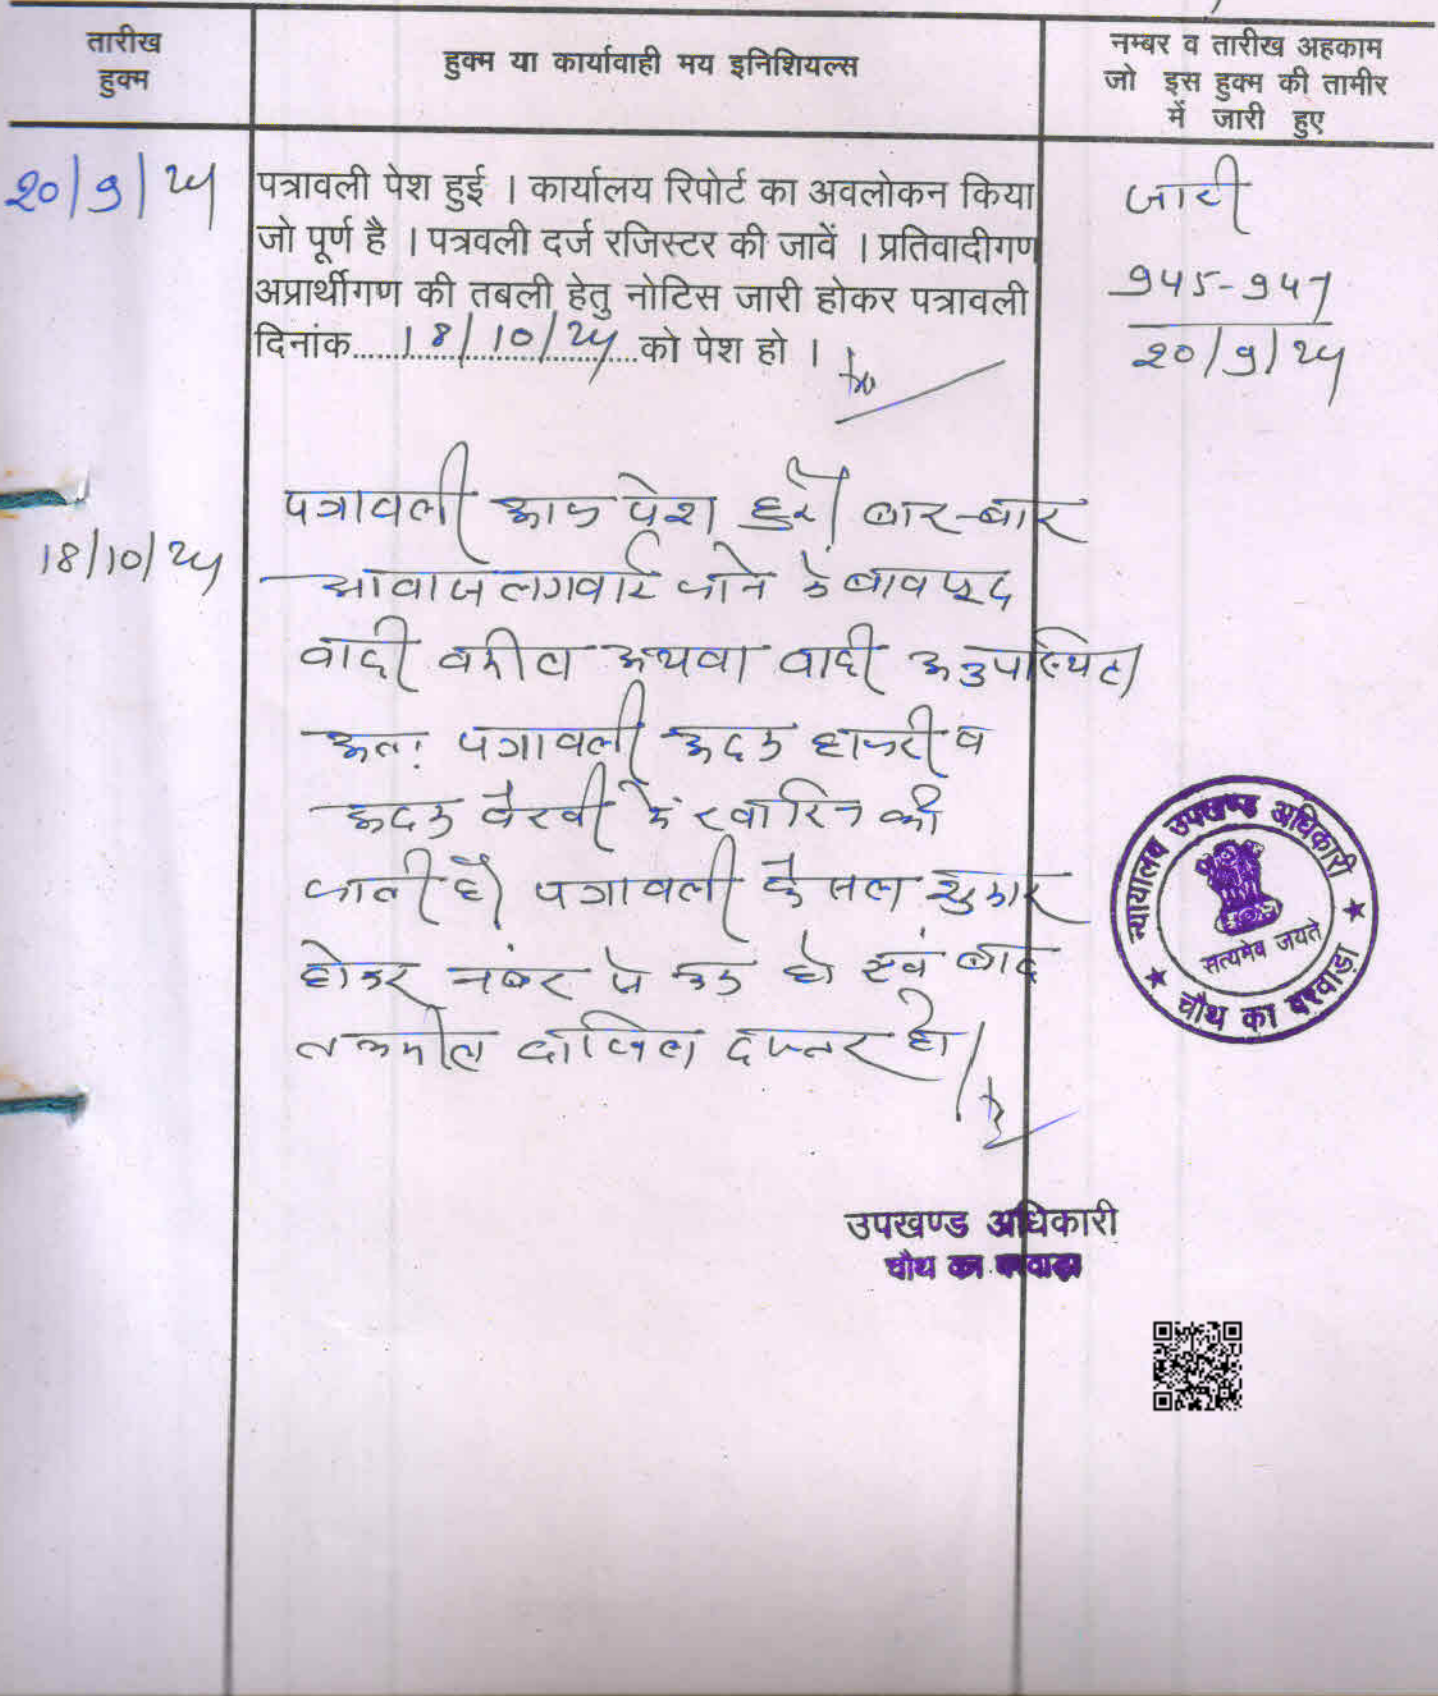 तारीख
हुक्म
हुक्म या कार्यावाही मय इनिशियल्स
नम्बर व तारीख अहकाम
जो इस हुक्म की तामीर
में जारी हुए
20/9/24
पत्रावली पेश हुई । कार्यालय रिपोर्ट का अवलोकन किया
जो पूर्ण है । पत्रवली दर्ज रजिस्टर की जावें । प्रतिवादीगण
अप्रार्थीगण की तबली हेतु नोटिस जारी होकर पत्रावली
दिनांक.....18/10/24.....को पेश हो ।
जारी
945-947
20/9/24
18/10/24
पत्रावली आज पेश हुई। बार-बार
आवाज लगवाई जाने के बावजूद
वादी वकील अथवा वादी अनुपस्थित।
अतः पत्रावली अदम हाजरी व
अदम पैरवी में खारिज की
जाती है। पत्रावली फैसल शुमार
होकर नंबर से कम हो एवं बाद
तकमील दाखिल दफ्तर हो।
न्यायालय उपखण्ड अधिकारी
सत्यमेव जयते
चौथ का बरवाड़ा
उपखण्ड अधिकारी
चौथ का बरवाड़ा